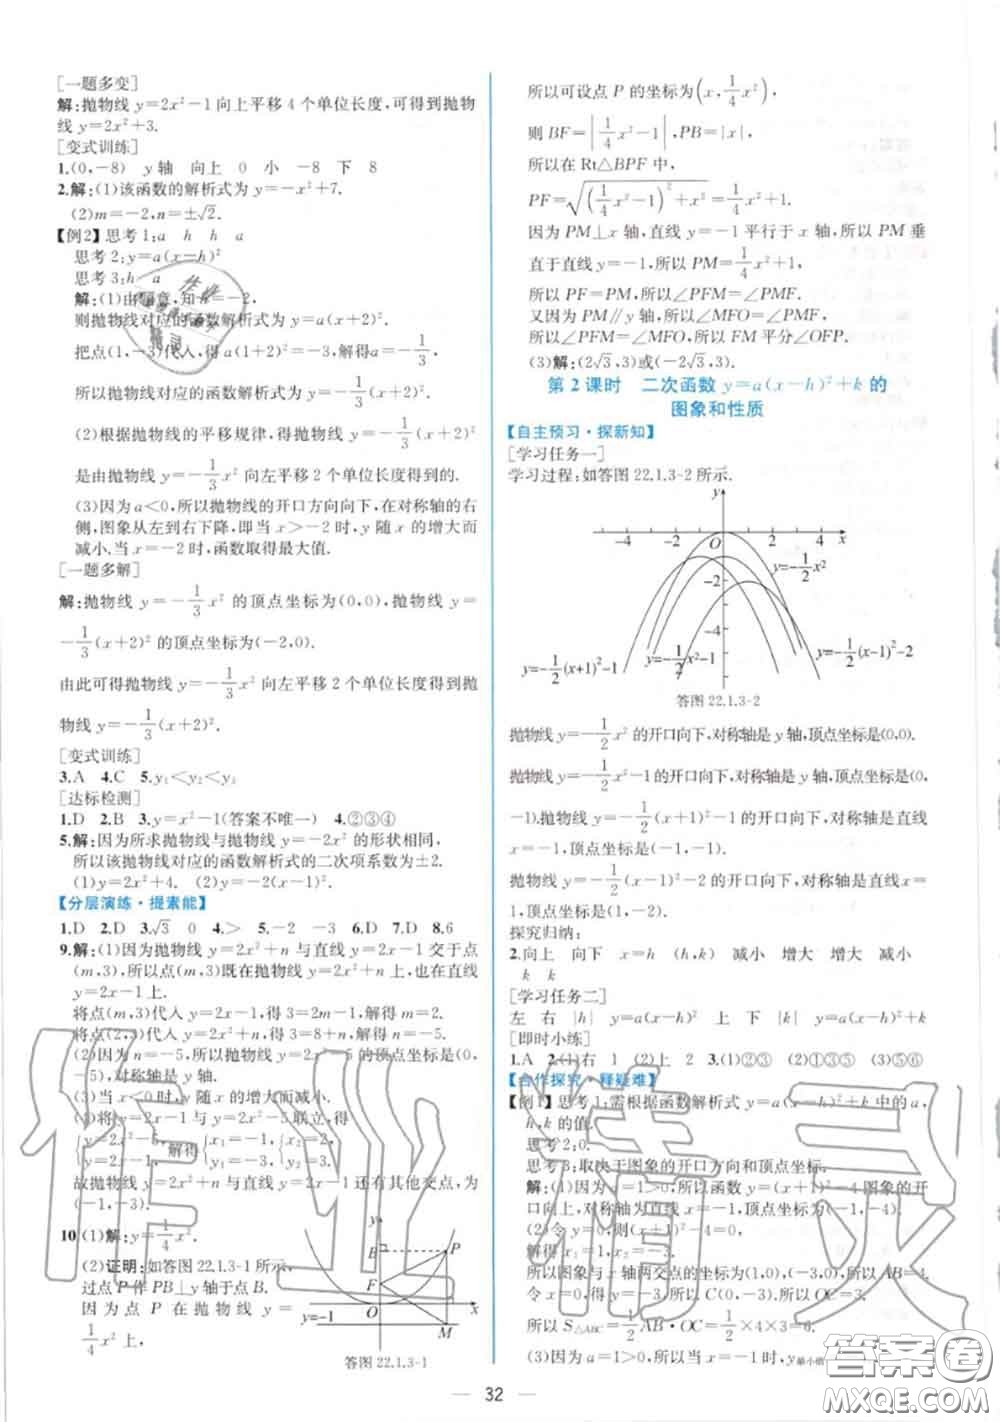 [一题多变]
解:抛物线 y=2x²-1 向上平移 4 个单位长度,可得到抛物
线 y=2x²+3.
[变式训练]
1.(0,-8) y 轴 向上 0 小 -8 下 8
2.解:(1)该函数的解析式为 y=-x²+7.
(2)m=-2,n=±√2.
【例2】思考 1:a h h a
思考 2:y=a(x-h)²
思考 3:h a
解:(1)由题意,知 h=-2,
则抛物线对应的函数解析式为 y=a(x+2)².
把点(1,-3)代入,得 a(1+2)²=-3,解得 a=-1/3,
所以抛物线对应的函数解析式为 y=-1/3(x+2)².
(2)根据抛物线的平移规律,得抛物线 y=-1/3(x+2)²
是由抛物线 y=-1/3x² 向左平移 2 个单位长度得到的.
(3)因为 a<0,所以抛物线的开口方向向下,在对称轴的右
侧,图象从左到右下降,即当 x>-2 时,y 随 x 的增大而
减小.当 x=-2 时,函数取得最大值.
[一题多解]
解:抛物线 y=-1/3x² 的顶点坐标为(0,0),抛物线 y=
-1/3(x+2)² 的顶点坐标为(-2,0).
由此可得抛物线 y=-1/3x² 向左平移 2 个单位长度得到抛
物线 y=-1/3(x+2)².
[变式训练]
3.A 4.C 5.y₁<y₂<y₃
[达标检测]
1.D 2.B 3.y=x²-1(答案不唯一) 4.②③④
5.解:因为所求抛物线与抛物线 y=-2x² 的形状相同,
所以该抛物线对应的函数解析式的二次项系数为±2.
(1)y=2x²+4. (2)y=-2x²-1.
【分层演练·提素能】
1.D 2.D 3.√3 0 4.> 5.-2 -3 6.D 7.D 8.6
9.解:(1)因为抛物线 y=2x²+n 与直线 y=2x-1 交于点
(m,3),所以点(m,3)既在抛物线 y=2x²+n 上,也在直线
y=2x-1 上.
将点(m,3)代入 y=2x-1,得 3=2m-1,解得 m=2.
将点(2,3)代入 y=2x²+n,得 3=8+n,解得 n=-5.
(2)因为 n=-5,所以抛物线 y=2x²-5 的顶点坐标是(0,
-5),对称轴是 y 轴.
(3)当 x<0 时,y 随 x 的增大而减小.
(4)将 y=2x-1 与 y=2x²-5 联立,得
{y=2x-1, y=2x²-5, 解得{x₁=-1, y₁=-3, {x₂=2, y₂=3.
故抛物线 y=2x²-5 与直线 y=2x-1 还有其他交点,为
(-1,-3).
10.(1)解:y=1/4x².
(2)证明:如答图 22.1.3-1 所示,
过点 P 作 PB⊥y 轴于点 B.
因为点 P 在抛物线 y=
1/4x² 上,
y
B
P
F
O
x
y=-1
M
答图 22.1.3-1
所以可设点 P 的坐标为(x,1/4x²),
则 BF=|1/4x²-1|,PB=|x|,
所以在 Rt△BPF 中,
PF=√((1/4x²-1)²+x²)=1/4x²+1.
因为 PM⊥x 轴,直线 y=-1 平行于 x 轴,所以 PM 垂
直于直线 y=-1,所以 PM=1/4x²+1,
所以 PF=PM,所以∠PFM=∠PMF.
又因为 PM∥y 轴,所以∠MFO=∠PMF,
所以∠PFM=∠MFO,所以 FM 平分∠OFP.
(3)解:(2√3,3)或(-2√3,3).
第 2 课时 二次函数 y=a(x-h)²+k 的
图象和性质
【自主预习·探新知】
[学习任务一]
学习过程:如答图 22.1.3-2 所示.
y
-4 -2 O 2 4 x
-2
-4
y=-1/2x²
y=-1/2(x+1)²-1
y=-1/2x²-1
y=-1/2(x-1)²-2
答图 22.1.3-2
抛物线 y=-1/2x² 的开口向下,对称轴是 y 轴,顶点坐标是(0,0).
抛物线 y=-1/2x²-1 的开口向下,对称轴是 y 轴,顶点坐标是(0,
-1).抛物线 y=-1/2(x+1)²-1 的开口向下,对称轴是直线
x=-1,顶点坐标是(-1,-1).
抛物线 y=-1/2(x-1)²-2 的开口向下,对称轴是直线 x=
1,顶点坐标是(1,-2).
探究归纳:
2.向上 向下 x=h (h,k) 减小 增大 增大 减小
k k
[学习任务二]
左 右 |h| y=a(x-h)² 上 下 |k| y=a(x-h)²+k
[即时小练]
1.A 2.(1)右 1 (2)上 2 3.(1)②③ (2)①③ (3)⑤⑥
【合作探究·释疑难】
【例1】思考 1:需根据函数解析式 y=a(x-h)²+k 中的 a,
h,k 的值.
思考 2:0.
思考 3:取决于图象的开口方向和顶点坐标.
解:(1)因为 a=1>0,所以函数 y=(x+1)²-4 图象的开
口向上,对称轴为直线 x=-1,顶点坐标为(-1,-4).
(2)令 y=0,则(x+1)²-4=0,
解得 x₁=1,x₂=-3.
所以图象与 x 轴两交点的坐标为(1,0),(-3,0),所以 AB=4.
令 x=0,得 y=-3,所以 C(0,-3),所以 OC=3.
所以 S△ABC=1/2AB·OC=1/2×4×3=6.
(3)因为 a=1>0,所以当 x=-1 时,y最小值
32
作业精灵
答案圈
MXQE.COM